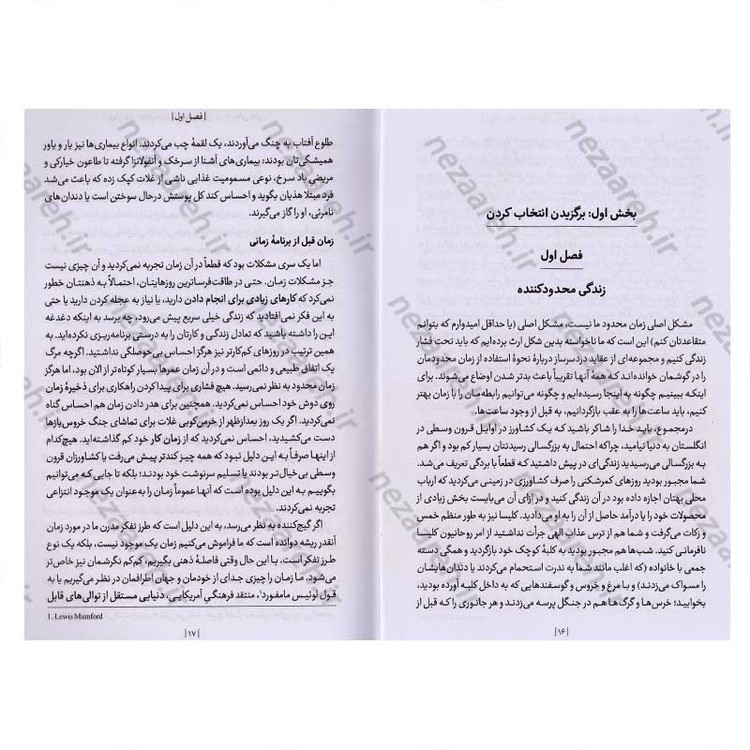 بخش اول: برگزیدن انتخاب کردن
فصل اول
زندگی محدودکننده
مشکل اصلی زمان محدود ما نیست، مشکل اصلی (یا حداقل امیدوارم که بتوانم
متقاعدتان کنم) این است که ما ناخواسته بدین شکل ارث برده‌ایم که باید تحت فشار
زندگی کنیم و مجموعه‌ای از عقاید دردسرساز دربارهٔ نحوهٔ استفاده از زمان محدودمان
را در گوشمان خوانده‌اند که همهٔ آنها تقریباً باعث بدتر شدن اوضاع می‌شوند. برای
اینکه ببینیم چگونه به اینجا رسیده‌ایم و چگونه می‌توانیم رابطه‌مان را با زمان بهتر
کنیم، باید ساعت‌ها را به عقب بازگردانیم، به قبل از وجود ساعت‌ها.
درمجموع، باید خدا را شاکر باشید که یک کشاورز در اوایل قرون وسطی در
انگلستان به دنیا نیامید، چراکه احتمال به بزرگسالی رسیدنتان بسیار کم بود و اگر هم
به بزرگسالی می‌رسیدید زندگی‌ای در پیش داشتید که قطعاً با بردگی تعریف می‌شد.
شما مجبور بودید روزهای کمرشکنی را صرف کشاورزی در زمینی می‌کردید که ارباب
محلی بهتان اجازه داده بود در آن زندگی کنید و در ازای آن می‌بایست بخش زیادی از
محصولات خود را یا درآمد حاصل از آن را به او می‌دادید. کلیسا نیز به طور منظم خمس
و زکات می‌گرفت و شما هم از ترس عذاب الهی جرأت نداشتید از امر روحانیون کلیسا
نافرمانی کنید. شب‌ها هم مجبور بودید به کلبهٔ کوچک خود بازگردید و همگی دسته
جمعی با خانواده (که اغلب مانند شما به ندرت استحمام می‌کردند یا دندان‌هایشان
را مسواک می‌زدند) و با مرغ و خروس و گوسفندهایی که به داخل کلبه آورده بودید،
بخوابید؛ خرس‌ها و گرگ‌ها هم در جنگل پرسه می‌زدند و هر جانوری را که قبل از
|۱۶|
|فصل اول|
طلوع آفتاب به چنگ می‌آوردند، یک لقمهٔ چپ می‌کردند. انواع بیماری‌ها نیز یار و یاور
همیشگی‌تان بودند: بیماری‌های آشنا از سرخک و آنفولانزا گرفته تا طاعون خیارکی و
مریضی باد سرخ، نوعی مسمومیت غذایی ناشی از غلات کپک زده که باعث می‌شد
فرد مبتلا هذیان بگوید و احساس کند کل پوستش درحال سوختن است یا دندان‌های
نامرئی، او را گاز می‌گیرند.
زمان قبل از برنامهٔ زمانی
اما یک سری مشکلات بود که قطعاً در آن زمان تجربه نمی‌کردید و آن چیزی نیست
جز مشکلات زمان. حتی در طاقت‌فرساترین روزهایتان، احتمالاً به ذهنتان خطور
نمی‌کرد که کارهای زیادی برای انجام دادن دارید، یا نیاز به عجله کردن دارید یا حتی
به این فکر نمی‌افتادید که زندگی خیلی سریع پیش می‌رود، چه برسد به اینکه دغدغه
این را داشته باشید که تعادل زندگی و کارتان را به درستی برنامه‌ریزی نکرده‌اید. به
همین ترتیب در روزهای کم‌کارتر نیز هرگز احساس بی‌حوصلگی نداشتید. اگرچه مرگ
یک اتفاق طبیعی و دائمی است و در آن زمان عمرها بسیار کوتاه‌تر از الان بود، اما هرگز
زمان محدود به نظر نمی‌رسید. هیچ فشاری برای پیدا کردن راهکاری برای ذخیرهٔ زمان
روی دوش خود احساس نمی‌کردید. همچنین برای هدر دادن زمان هم احساس گناه
نمی‌کردید. اگر یک روز بعدازظهر از خرمن‌کوبی غلات برای تماشای جنگ خروس‌بازها
دست می‌کشیدید، احساس نمی‌کردید که از زمان کار خود کم گذاشته‌اید. هیچ‌کدام
از اینها صرفاً به این دلیل نبود که همه چیز کندتر پیش می‌رفت یا کشاورزان قرون
وسطی بی‌خیال‌تر بودند یا تسلیم سرنوشت خود بودند؛ بلکه تا جایی که می‌توانیم
بگوییم به این دلیل بوده است که آنها عموماً زمان را به‌عنوان یک موجود انتزاعی
تجربه نمی‌کردند.
اگر گیج‌کننده به نظر می‌رسد، به این دلیل است که طرز تفکر مدرن ما در مورد زمان
آنقدر ریشه دوانده است که ما فراموش می‌کنیم زمان یک موجود نیست، بلکه یک نوع
طرز تفکر است. با این حال وقتی فاصلهٔ ذهنی بگیریم، کم‌کم نگرشمان نیز خاص‌تر
می‌شود. ما زمان را چیزی جدای از خودمان و جهان اطرافمان در نظر می‌گیریم یا به
قول لوئیس مامفورد۱، منتقد فرهنگی آمریکایی، دنیایی مستقل از توالی‌های قابل
1. Lewis Mumford
|۱۷|
nezaareh.ir